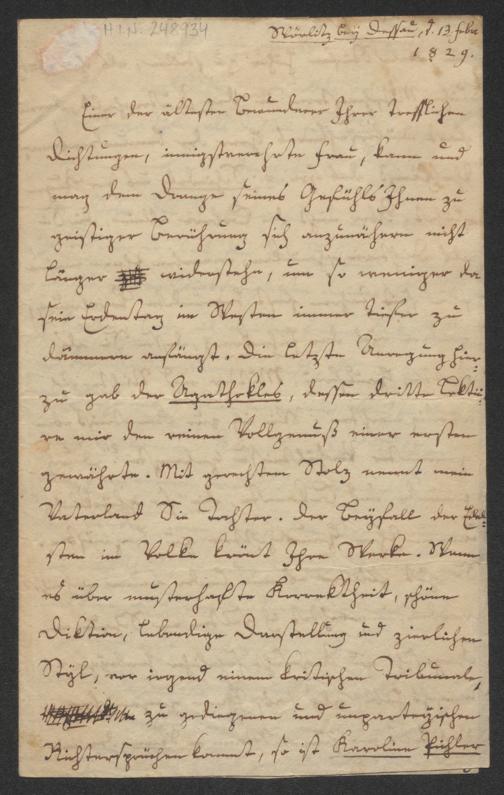 H.I.N. 248934
Wörlitz bey Dessau, d. 13 Febr
1829.
Einer der ältesten Bewunderer Ihrer trefflichen
Dichtungen, innigstverehrte Frau, kann und
mag dem Drange seines Gefühls Ihnen zu
geistiger Berührung sich anzunähern nicht
länger widerstehn, um so weniger da
sein Erdentag im Westen immer tiefer zu
dämmern anfängt. Die letzte Anregung hier-
zu gab der Agathokles, dessen dritte Lektü-
re mir den reinen Vollgenuß einer ersten
gewährte. Mit gerechtem Stolz nennt mein
Vaterland Sie Tochter. Der Beyfall der Edel-
sten im Volke krönt Ihre Werke. Wenn
es über musterhafte Korrektheit, schöne
Diktion, lebendige Darstellung und zierlichen
Styl, vor irgend einem kritischen Tribunale,
zu gediegenen und unparteyischen
Richtersprüchen kommt, so ist Karoline Pichler